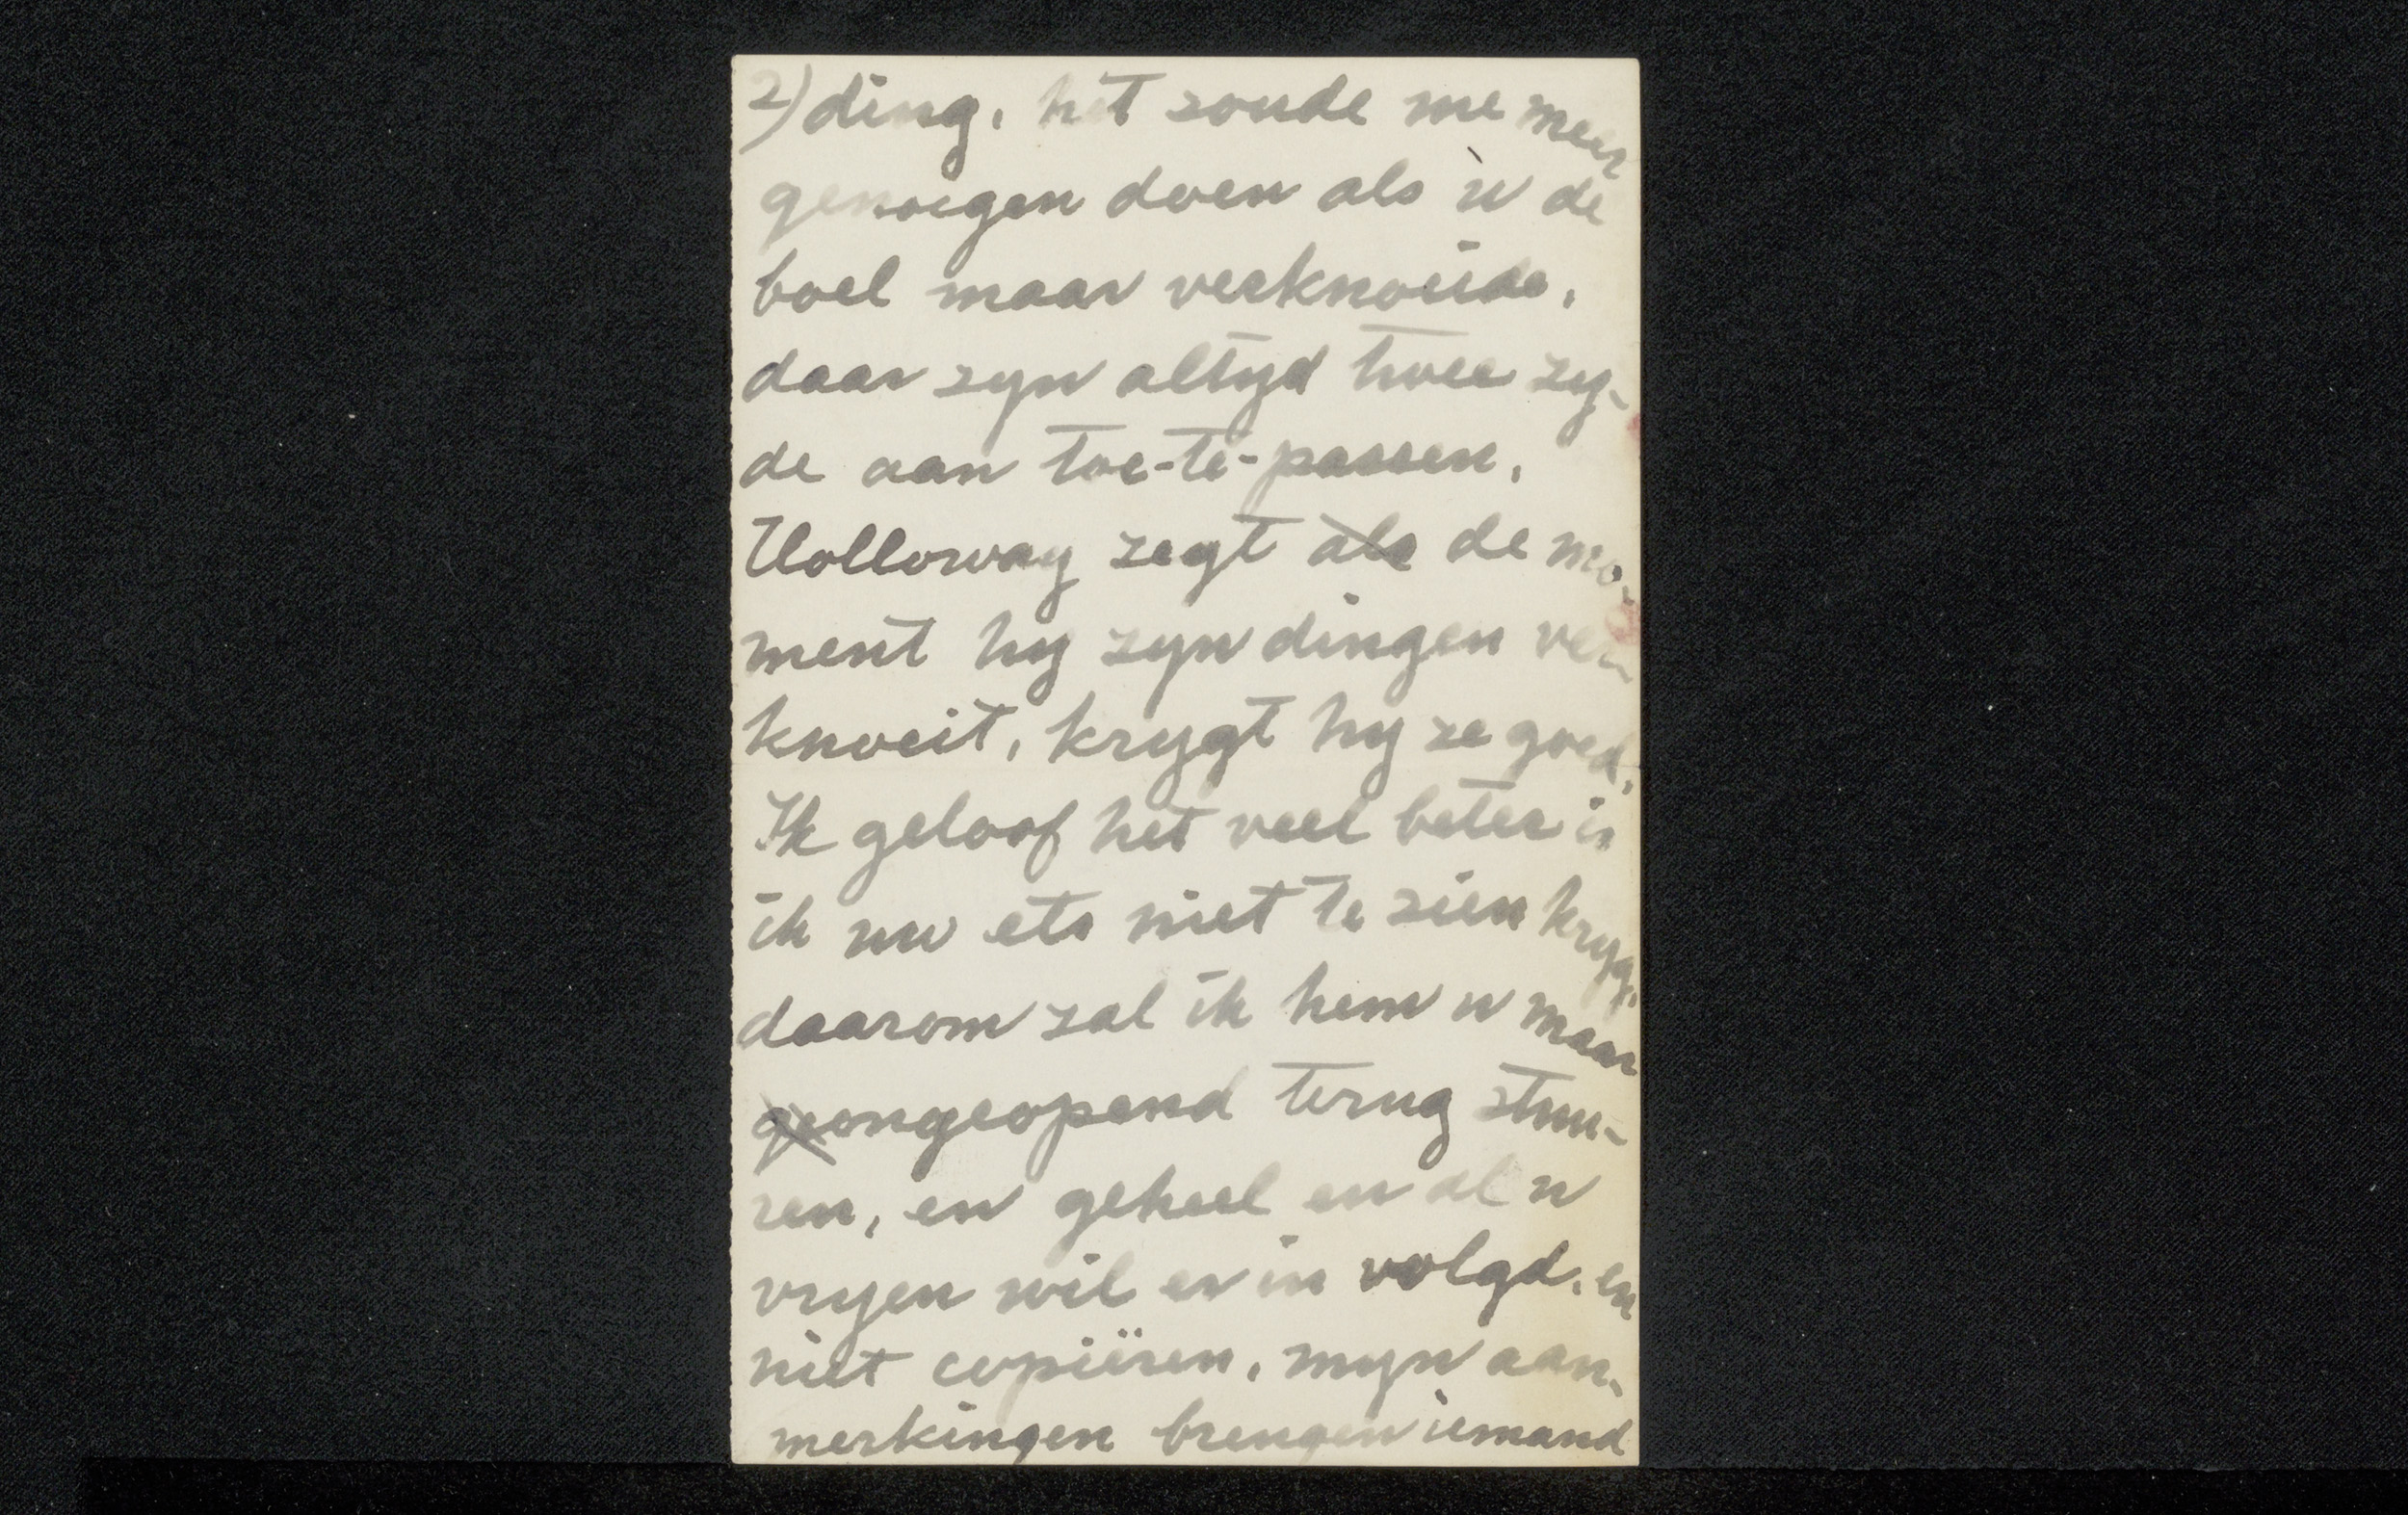 2) ding, het zoude me meer
genoegen doen als ù de
boel maar verknoeide,
daar zyn altyd twee zy-
de aan toe-te-passen,
Holloway zegt als de mo-
ment hy zyn dingen ver-
knoeit, krygt hy ze goed,
Ik geloof het veel beter is
ik uw ets niet te zien kryg,
daarom zal ik hem u maar
geongeopend terug stuu-
ren, en geheel en al u
vryen wil er in volgd. en
niet copiëren, myn aan-
merkingen brengen iemand